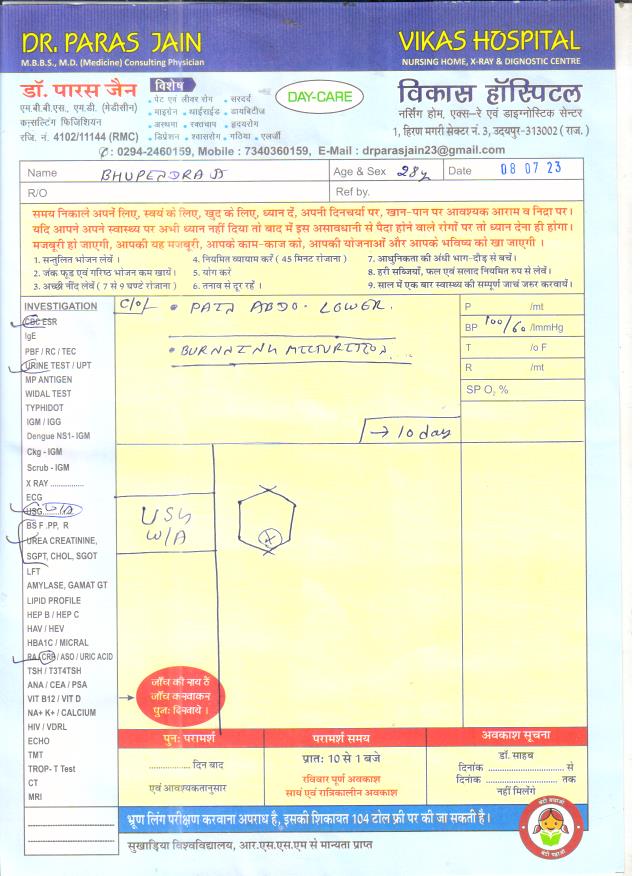 DR. PARAS JAIN
M.B.B.S., M.D. (Medicine) Consulting Physician
VIKAS HOSPITAL
NURSING HOME, X-RAY & DIGNOSTIC CENTRE
डॉ. पारस जैन
एम.बी.बी.एस., एम.डी. (मेडीसीन)
कन्सल्टिंग फिजिशियन
रजि. नं. 4102/11144 (RMC)
विशेष
• पेट एवं लीवर रोग • सरदर्द
• माइग्रेन • थाईराईड • डायबिटीज
• अस्थमा • रक्तचाप • हृदयरोग
• डिप्रेशन • श्वासरोग • गठिया • एलर्जी
DAY-CARE
विकास हॉस्पिटल
नर्सिंग होम, एक्स-रे एवं डाइग्नोस्टिक सेन्टर
1, हिरण मगरी सेक्टर नं. 3, उदयपुर-313002 ( राज. )
✆: 0294-2460159, Mobile : 7340360159, E-Mail : drparasjain23@gmail.com
Name BHUPENDRA JI Age & Sex 28y Date 08 07 23
R/O Ref by.
समय निकाले अपने लिए, स्वयं के लिए, खुद के लिए, ध्यान दें, अपनी दिनचर्या पर, खान-पान पर आवश्यक आराम व निद्रा पर।
यदि आपने अपने स्वास्थ्य पर अभी ध्यान नहीं दिया तो बाद में इस असावधानी से पैदा होने वाले रोगों पर तो ध्यान देना ही होगा।
मजबूरी हो जाएगी, आपकी यह मजबूरी, आपके काम-काज को, आपकी योजनाओं और आपके भविष्य को खा जाएगी।
1. सन्तुलित भोजन लेवें। 4. नियमित व्यायाम करें ( 45 मिनट रोजाना ) 7. आधुनिकता की अंधी भाग-दौड़ से बचें।
2. जंक फूड एवं गरिष्ठ भोजन कम खायें। 5. योग करें 8. हरी सब्जियाँ, फल एवं सलाद नियमित रुप से लेवें।
3. अच्छी नींद लेवें ( 7 से 9 घण्टे रोजाना ) 6. तनाव से दूर रहें। 9. साल में एक बार स्वास्थ्य की सम्पूर्ण जाचं जरुर करवायें।
INVESTIGATION
CBC ESR
IgE
PBF / RC / TEC
URINE TEST / UPT
MP ANTIGEN
WIDAL TEST
TYPHIDOT
IGM / IGG
Dengue NS1- IGM
Ckg - IGM
Scrub - IGM
X RAY ...............
ECG
USG W/A
BS F .PP, R
UREA CREATININE,
SGPT, CHOL, SGOT
LFT
AMYLASE, GAMAT GT
LIPID PROFILE
HEP B / HEP C
HAV / HEV
HBA1C / MICRAL
RA / CRP / ASO / URIC ACID
TSH / T3T4TSH
ANA / CEA / PSA
VIT B12 / VIT D
NA+ K+ / CALCIUM
HIV / VDRL
ECHO
TMT
TROP- T Test
CT
MRI
C/o/ • PAIN ABDO. LOWER.
• BURNNING MICTURITION.
→ 10 day
P /mt
BP 100/60 /lmmHg
T /o F
R /mt
SP O, %
USG
W/A
जाँच की राय है
जाँच करवाकर
पुनः दिखाये।
पुनः परामर्श
................ दिन बाद
एवं आवश्यकतानुसार
परामर्श समय
प्रातः 10 से 1 बजे
रविवार पूर्ण अवकाश
सायं एवं रात्रिकालीन अवकाश
अवकाश सूचना
डॉ. साहब
दिनांक .......................... से
दिनांक .......................... तक
नहीं मिलेंगे
भ्रूण लिंग परीक्षण करवाना अपराध है, इसकी शिकायत 104 टोल फ्री पर की जा सकती है।
सुखाड़िया विश्वविद्यालय, आर.एस.एस.एम से मान्यता प्राप्त
बेटी बचाओ
बेटी पढ़ाओ